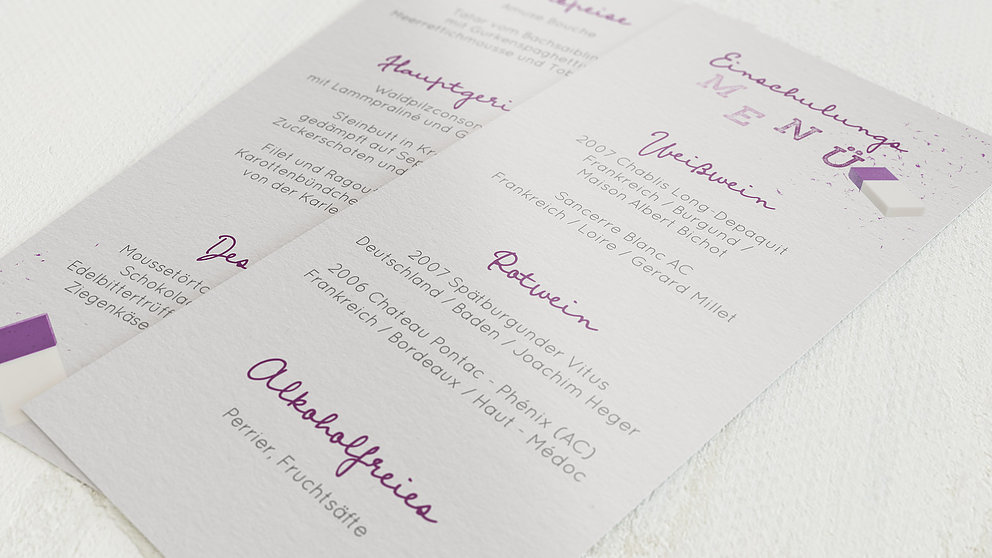 Amuse Bouche
Tatar vom Bachsaiblin
mit Gurkenspaghetti
Meerrettichmousse und Tob
Hauptgeri
Waldpilzconsom
mit Lammpraliné und G
Steinbutt in Kr
gedämpft auf Sep
Zuckerschoten und
Filet und Ragou
Karottenbündche
von der Karle
Des
Moussetörtc
Schokolad
Edelbittertrüff
Ziegenkäse
Einschulungs
MENÜ
Weißwein
2007 Chablis Long-Depaquit
Frankreich / Burgund /
Maison Albert Bichot
Sancerre Blanc AC
Frankreich / Loire / Gerard Millet
Rotwein
2007 Spätburgunder Vitus
Deutschland / Baden / Joachim Heger
2006 Chateau Pontac - Phénix (AC)
Frankreich / Bordeaux / Haut - Médoc
Alkoholfreies
Perrier, Fruchtsäfte